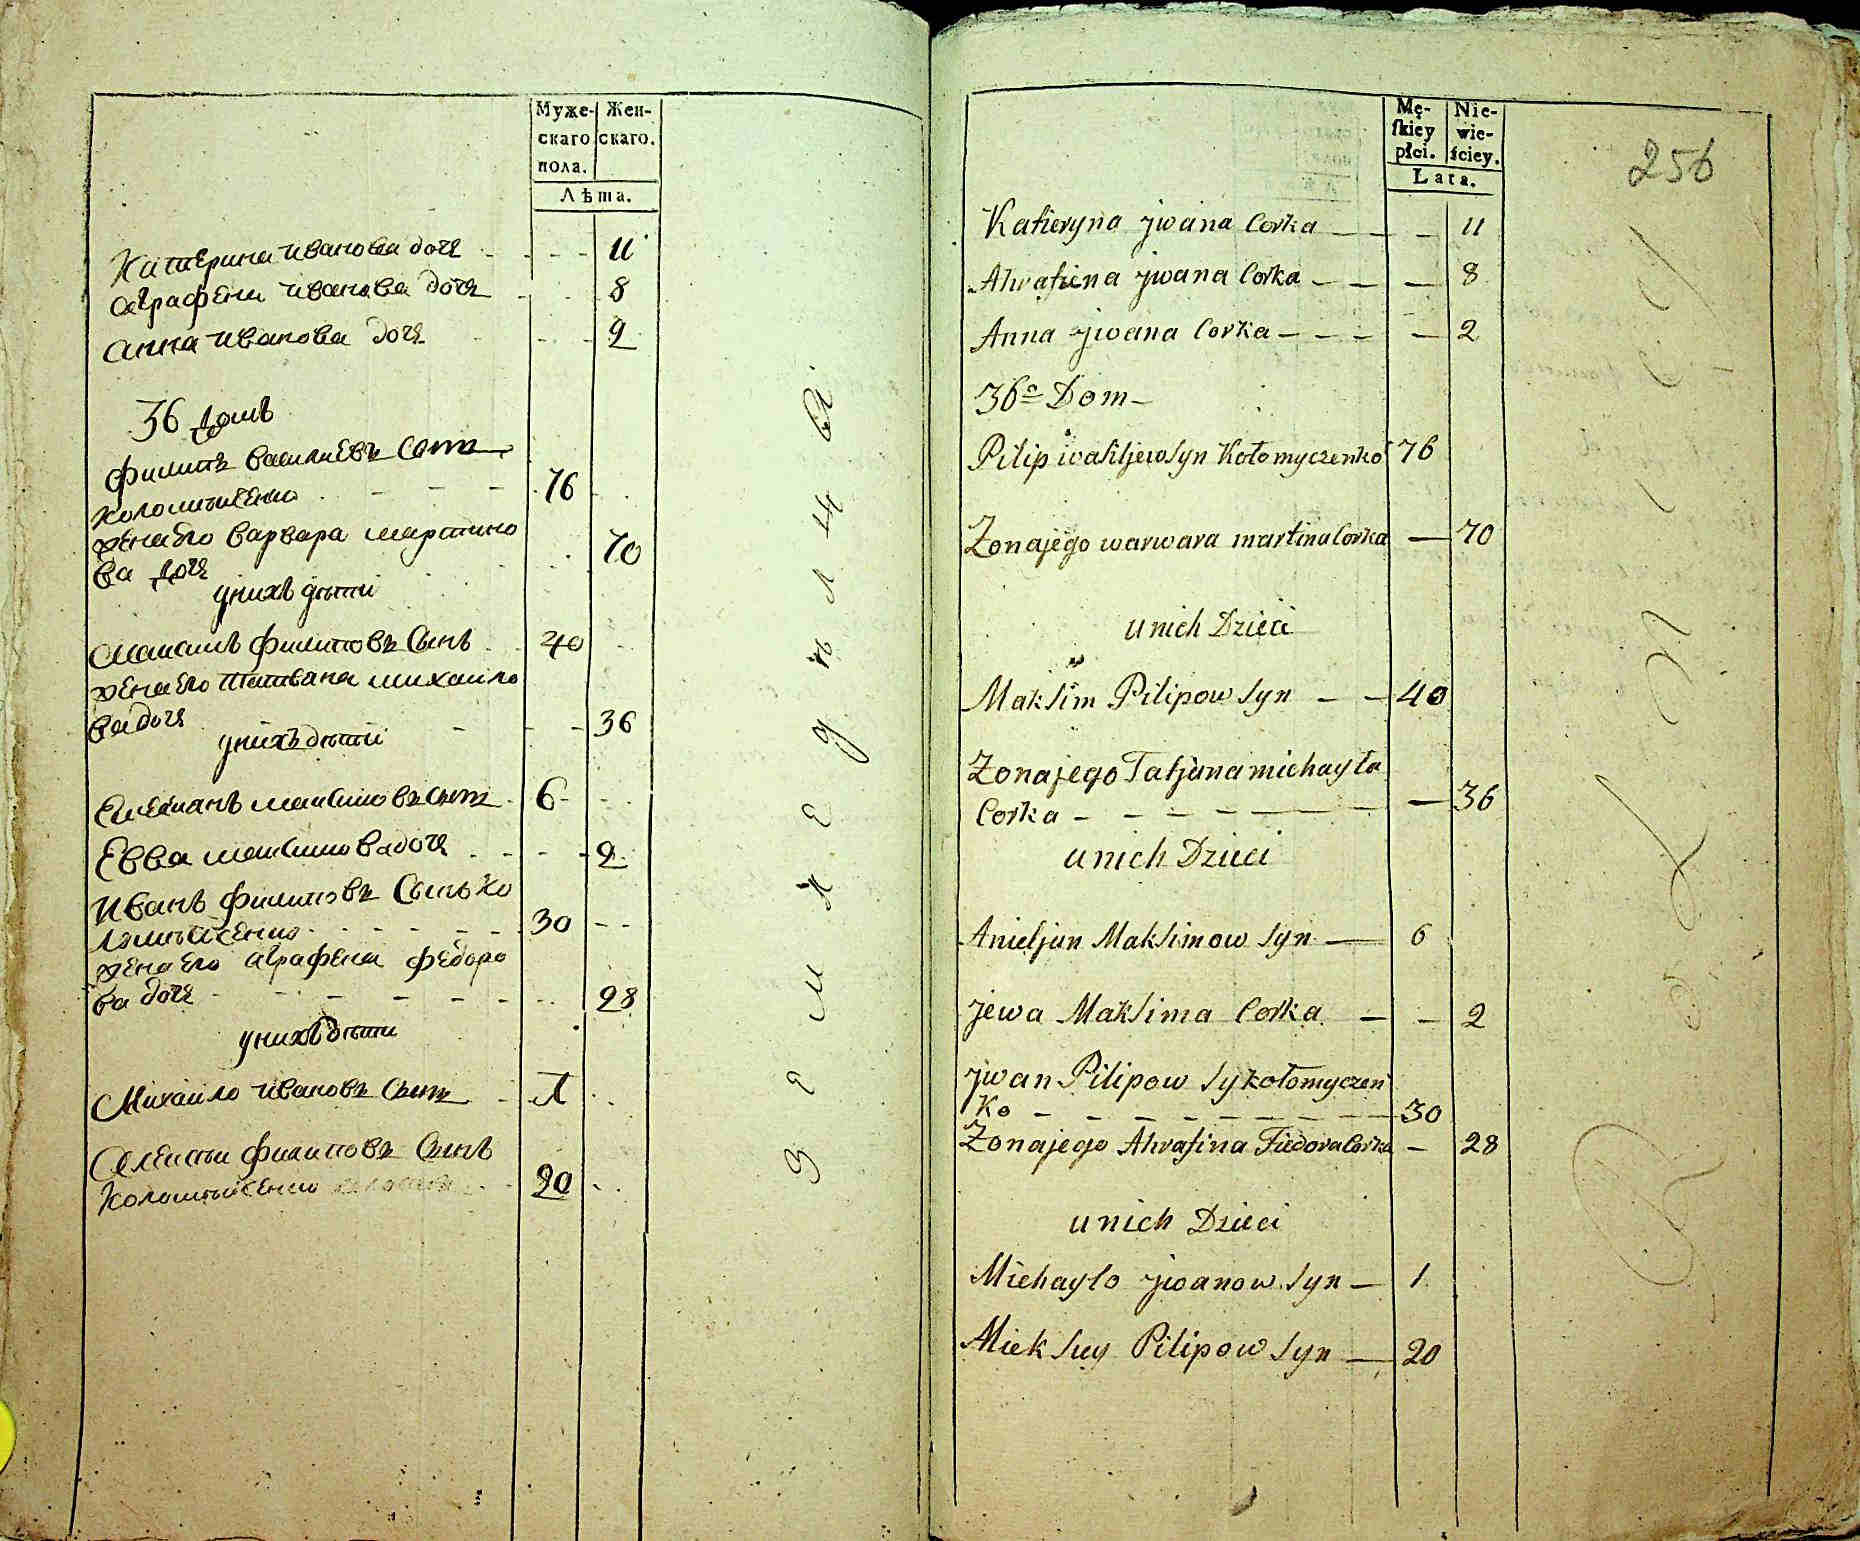 Муже-
скаго
пола.
Жен-
скаго.
Лѣта.
Катерина иванова дочь - - - 11
аграфена иванова дочь - - 8
анна иванова дочь - - - 2
36 домъ
филипъ василиевъ сынъ
коломыченко - - - 76
жена его варвара мартино
ва дочь 70
у нихъ дети
Максимъ филиповъ сынъ 40
жена его татиана михаило
ва дочь - - - 36
у нихъ дети
Емелианъ максимовъ сынъ 6 - -
Евва максимова дочь - - - 2
иванъ филиповъ сынъ ко
ломыченко - - - - 30 - -
жена его аграфена федоро
ва дочь - - - - - - 28
у нихъ дети
Михаило ивановъ сынъ - 1
Алексеи филиповъ сынъ
коломыченко 20
земледельцы
Mę-
skiey
płci.
Nie-
wie-
ściey.
Lata.
256
Katieryna jwana Corka — — — 11
Ahrafiena jwana Corka — — — 8
Anna jwana Corka — — — — 2
36o Dom —
Pilip wasiljew syn Kołomyczenko 76
Zonajego warwara martina Corka — 70
unich Dzieci
Maksim Pilipow syn — — 40
Zonajego Tatjana michayła
Corka — — — — — — 36
unich Dzieci
Anieljan Maksimow syn — 6
jewa Maksima Corka — — 2
jwan Pilipow sy kołomyczen
ko — — — — — — — 30
Zonajego Ahrafina Fiedora Corka — 28
unich Dzieci
Michayło jwanow syn — 1
Alieksiey Pilipow syn — 20